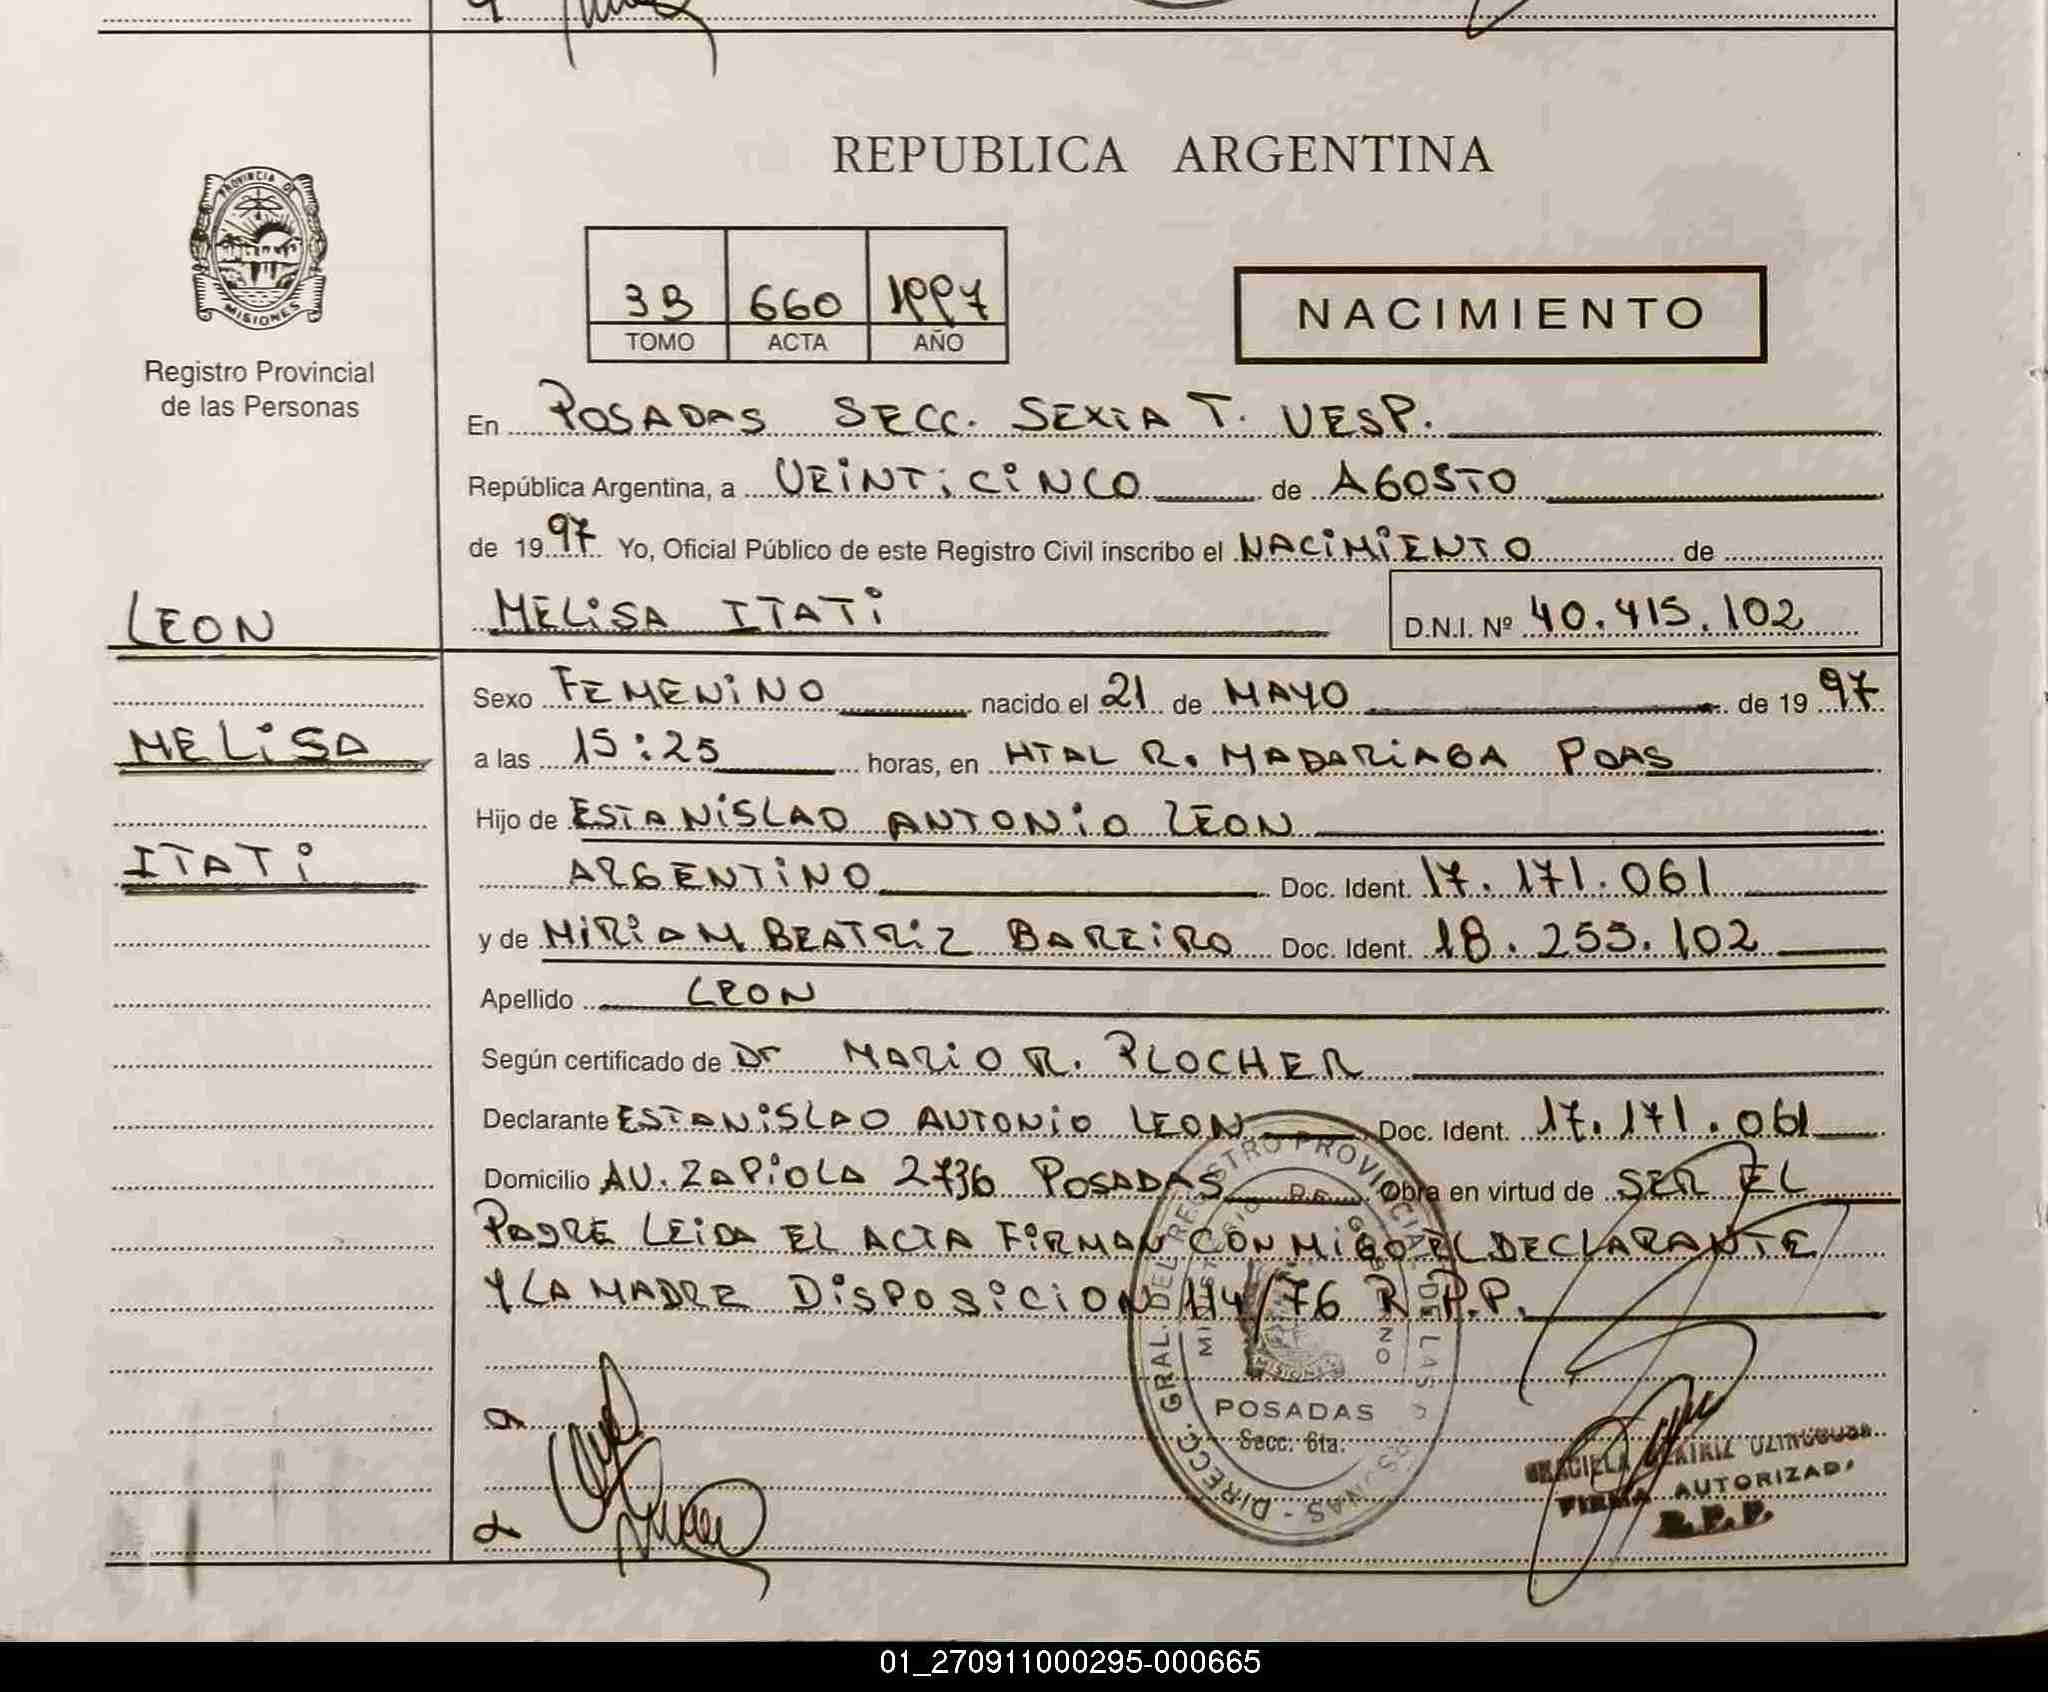 REPUBLICA ARGENTINA
PROVINCIA DE
MISIONES
Registro Provincial
de las Personas
3B 660 1997
TOMO ACTA AÑO
NACIMIENTO
En POSADAS SECC. SEXTA T. VESP.
República Argentina, a VEINTiCiNCO de AGOSTO
de 1997 Yo, Oficial Público de este Registro Civil inscribo el NACiMiENTO de
LEON
MELiSA ITATi D.N.I. Nº 40.415.102
Sexo FEMENiNO nacido el 21 de MAYO de 1997
MELiSA
a las 15:25 horas, en HTAL R. MADARiAGA POAS
Hijo de ESTANiSLAO ANTONiO LEON
ITATi
ARGENTiNO Doc. Ident. 17.171.061
y de MiRiAM BEATRiZ BAREiRO Doc. Ident. 18.255.102
Apellido LEON
Según certificado de Dr MARiO R. PLOCHER
Declarante ESTANiSLAO ANTONiO LEON Doc. Ident. 17.171.061
Domicilio AV. ZAPiOLA 2736 POSADAS Obra en virtud de SER EL
PADRE LEiDA EL ACTA FiRMAN CONMiGO EL DECLARANTE
Y LA MADRE DiSPOSiCiON 114/76 R.P.P.
DIRECC. GRAL. DEL REGISTRO PROVINCIAL DE LAS PERSONAS
MINISTERIO DE GOBIERNO
MISIONES
POSADAS
Secc. 6ta.
GRACIELA BEATRIZ
FIRMA AUTORIZADA
R.P.P.
01_270911000295-000665